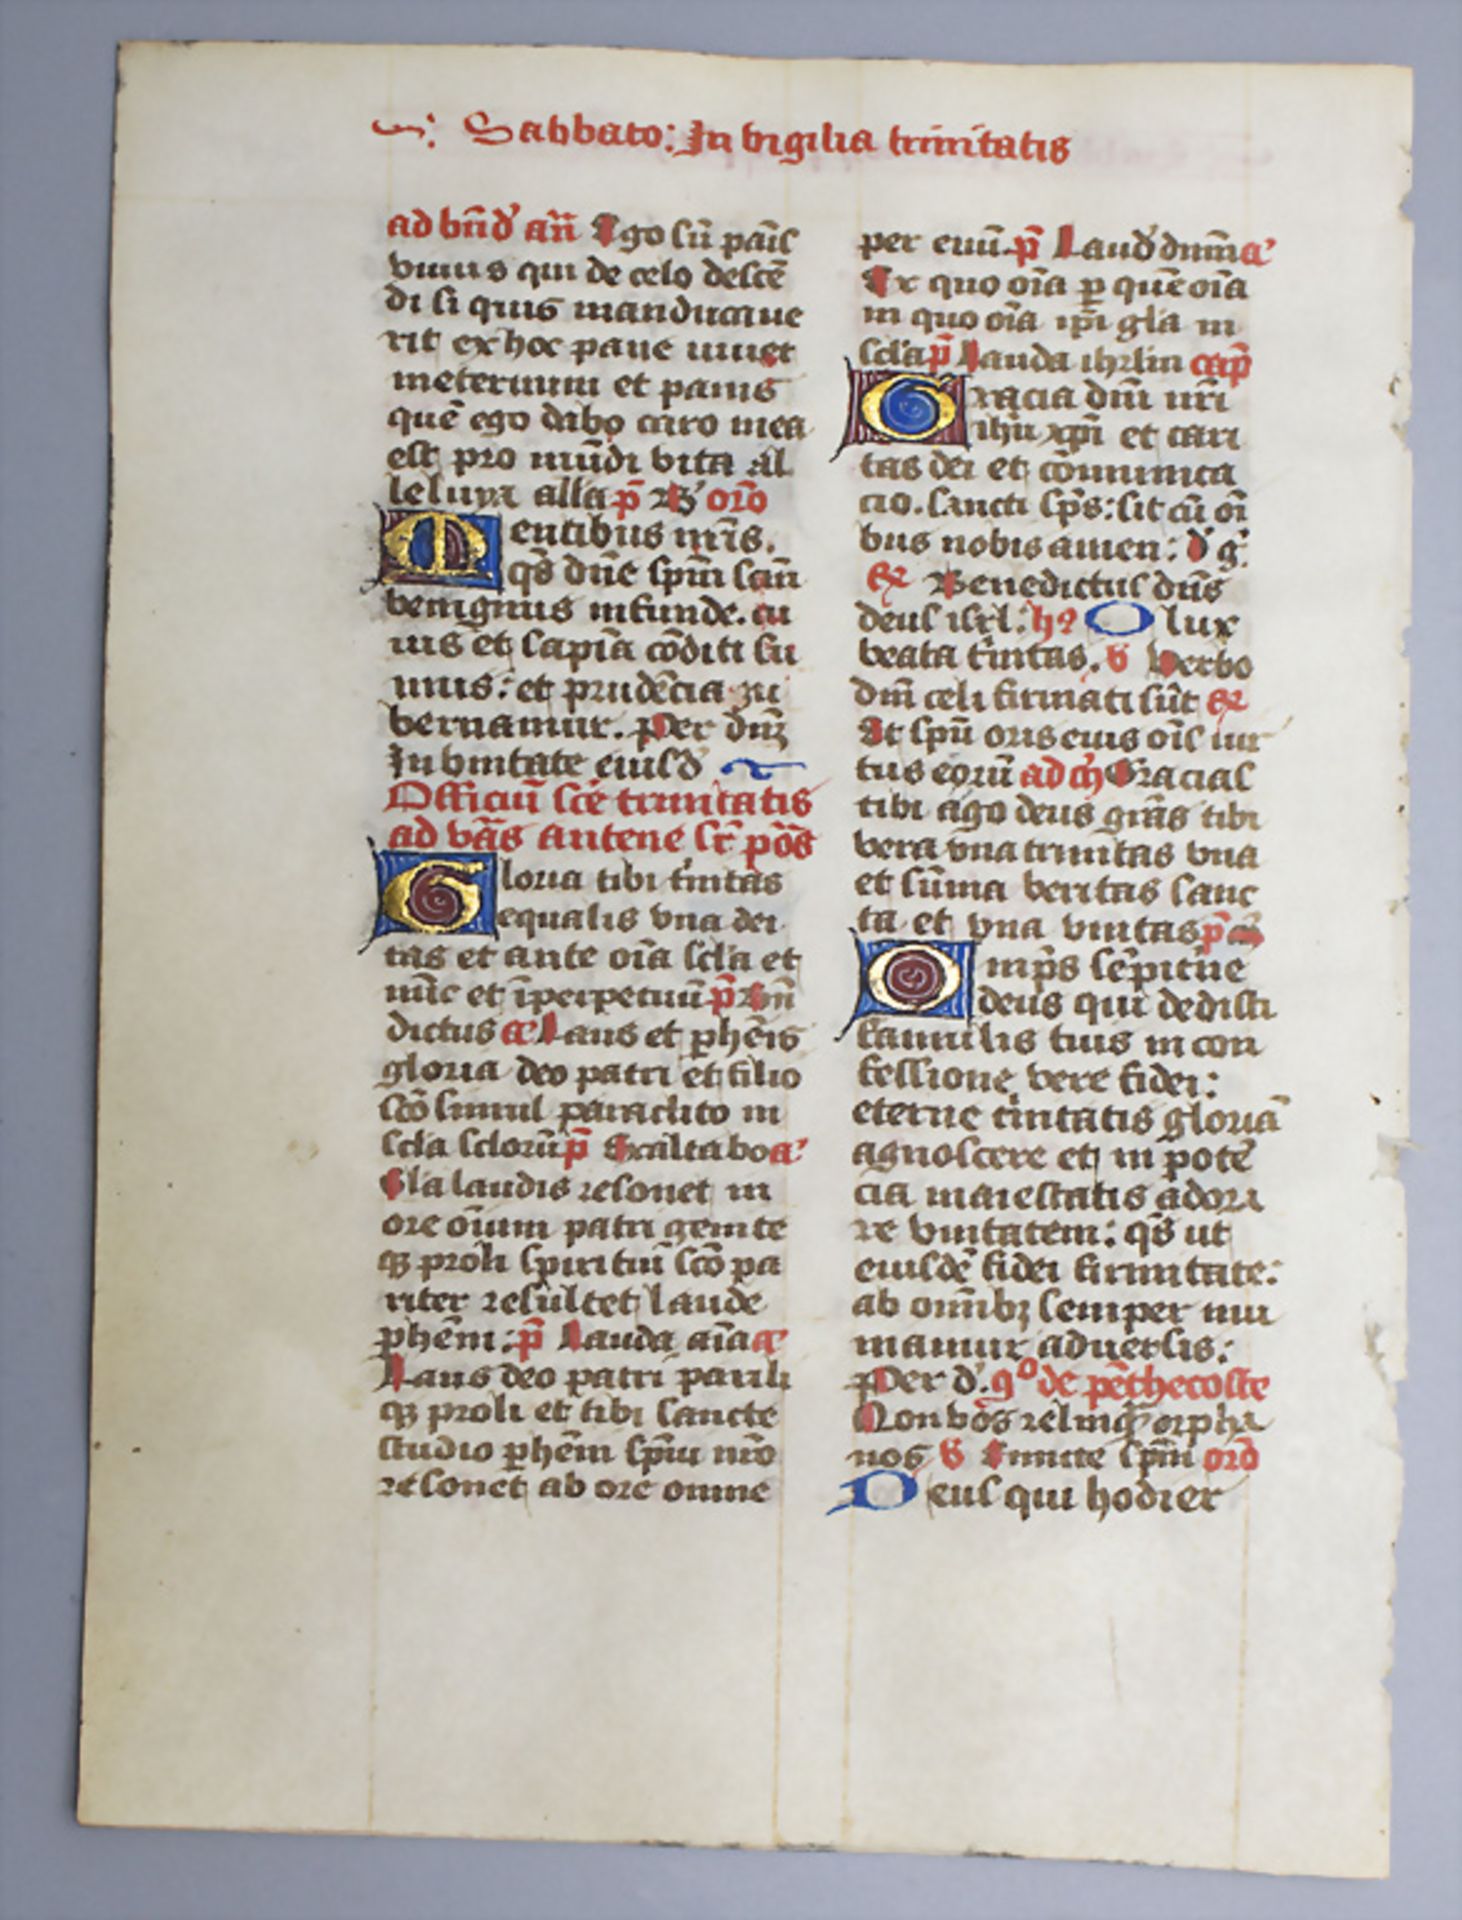 Sabbato: In vigilia trinitatis
ad bñd' añ Ego sū paīs
viuus qui de celo descē
di si quis manducaue
rit ex hoc pane uiuet
ineternum et panis
quē ego dabo caro mea
est pro mūdi vita Al
leluya alla p̄ orō
Mentibus nr̄is.
qs̄ dn̄e spm̄ scm̄
benignus infunde. cu
ius et sapīa cōditi su
mus: et prudēcia gu
bernamur. Per dn̄z
In vnitate eiusd'
Officiū scē trinitatis
ad vās antene sr̄ pōs
Gloria tibi t'initas
equalis vna dei
tas et ante oīa scl'a et
nūc et īperpetuū p̄
dictus a' Laus et phēis
gloria deo patri et filio
scō simul paraclito in
scl'a sclorū p̄ Exaltabo a'
Gl'a laudis resonet in
ore oīum patri genite
q3 proli spiritui scō pa
riter resultet laude
phēm: p̄ Lauda aīa a'
Laus deo patri parili
q3 proli et tibi sancte
studio phēm spiū nr̄o
resonet ab ore omne
per euū p̄ Laud' dnm̄ a'
Ex quo oīa p quē oīa
in quo oīa ip̄i gl'a in
scl'a p̄ Lauda ihrlm cap̄
Gracia dn̄i nr̄i
ihū xp̄i et cari
tas dei et cōmunica
cio. sancti sp̄s: sit cū oī
bus nobis amen: d' g'
Benedictus dn̄s
deus isrl. h9 O lux
beata t'initas. v Verbo
dn̄i celi firmati sūt
Et spū oris eius oīs uir
tus eorū ad m̄ Gracias
tibi ago deus grās tibi
vera vna trinitas vna
et sūma veritas sanc
ta et vna vnitas p̄
Omp̄s sēpit'ne
deus qui dedisti
famulis tuis in con
fessione vere fidei:
eterne t'initatis gloriā
agnoscere et in potē
cia maiestatis adora
re vnitatem: qs̄ ut
eiusdē fidei firmitate:
ab omīb3 semper mu
niamur aduersis:
Per d'. 9o de pēthecoste
Non vōs relinq' orpha
nos v Emitte spm̄ orō
Deus qui hodier